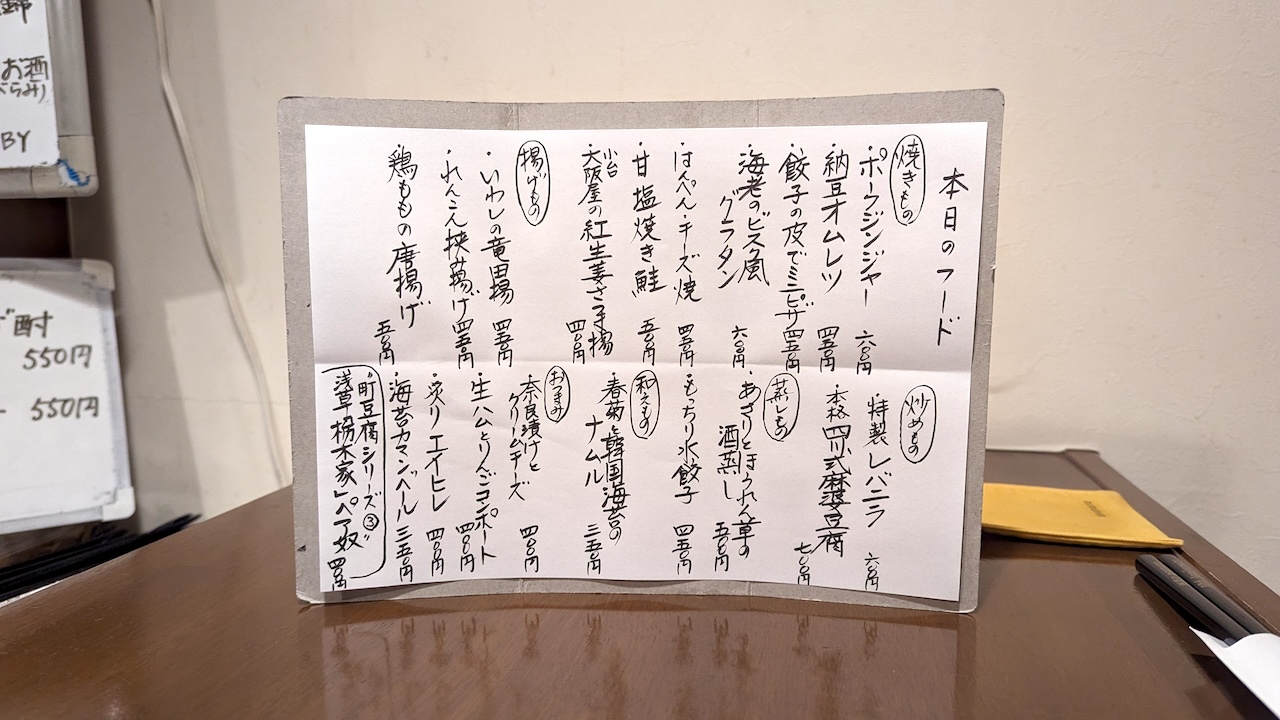 本日のフード
焼きもの
・ポークジンジャー 六〇〇円
・納豆オムレツ 四五〇円
・餃子の皮でミニピザ 四五〇円
・海老のビスク風
グラタン 六〇〇円
・はんぺん・チーズ焼 四五〇円
・甘塩焼き鮭 五〇〇円
・大阪屋の紅生姜さつま揚 四〇〇円
揚げもの
・いわしの竜田揚 四五〇円
・れんこん挟み揚げ 四五〇円
・鶏ももの唐揚げ 五〇〇円
炒めもの
・特製レバニラ 六〇〇円
・本格四川式麻婆豆腐 七〇〇円
蒸しもの
・あさりとほうれん草の
酒蒸し 五〇〇円
・もっちり水餃子 四五〇円
和えもの
・春菊と韓国海苔の
ナムル 三五〇円
おつまみ
・奈良漬けと
クリームチーズ 四〇〇円
・生ハムとりんごコンポート 四〇〇円
・炙りエイヒレ 四〇〇円
・海苔カマンベール 三五〇円
・町豆腐シリーズ③
浅草「栃木家」ペア奴 四〇〇円
お酒
BY
酎
550円
550円